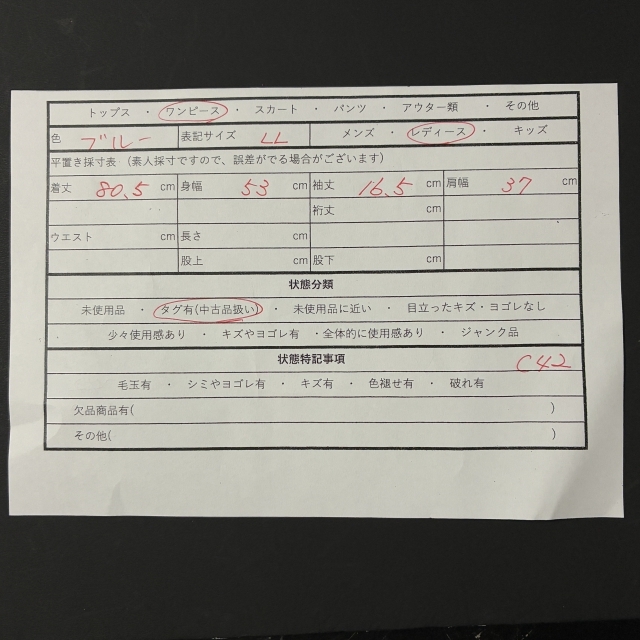 トップス ・ ワンピース ・ スカート ・ パンツ ・ アウター類 ・ その他
色 ブルー 表記サイズ LL メンズ ・ レディース ・ キッズ
平置き採寸表（素人採寸ですので、誤差がでる場合がございます）
着丈 80.5 cm 身幅 53 cm 袖丈 16.5 cm 肩幅 37 cm
裄丈 cm
ウエスト cm 長さ cm
股上 cm 股下 cm
状態分類
未使用品 ・ タグ有(中古品扱い) ・ 未使用品に近い ・ 目立ったキズ・ヨゴレなし
少々使用感あり ・ キズやヨゴレ有 ・全体的に使用感あり ・ ジャンク品
状態特記事項 C42
毛玉有 ・ シミやヨゴレ有 ・ キズ有 ・ 色褪せ有 ・ 破れ有
欠品商品有( )
その他( )